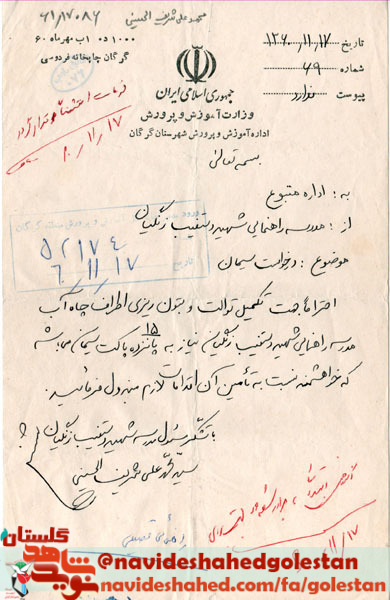 محمد علی شریف الحسینی
۶۱/۱۷۰۸۶
۱۰۰۰ د ۱۰۰ ب مهرماه ۶۰
گرگان چاپخانه فردوسی
تاریخ ۱۳۶۰/۱۱/۱۷
شماره ۶۹
پیوست ندارد
جمهوری اسلامی ایران
وزارت آموزش و پرورش
اداره آموزش و پرورش شهرستان گرگان
۶۰/۱۱/۱۷
بسمه تعالی
به : اداره متبوع
از : مدرسه راهنمائی شهید دستغیب زنگیان
موضوع : درخواست سیمان
۵۲۱۷۴
تاریخ ۶۰/۱۱/۱۷
احتراماً جهت تکمیل توالت و بتون ریزی اطراف چاه آب
مدرسه راهنمائی شهید دستغیب زنگیان نیاز به ۱۵ پانزده پاکت سیمان میباشد
که خواهشمند نسبت به تأمین آن اقدامات لازم مبذول فرمائید.
با تشکر مسئول مدرسه شهید دستغیب زنگیان
سید محمد علی شریف الحسینی
۱۱/۱۷
گلستان
نوید شاهد
@navideshahedgolestan
navideshahed.com/fa/golestan